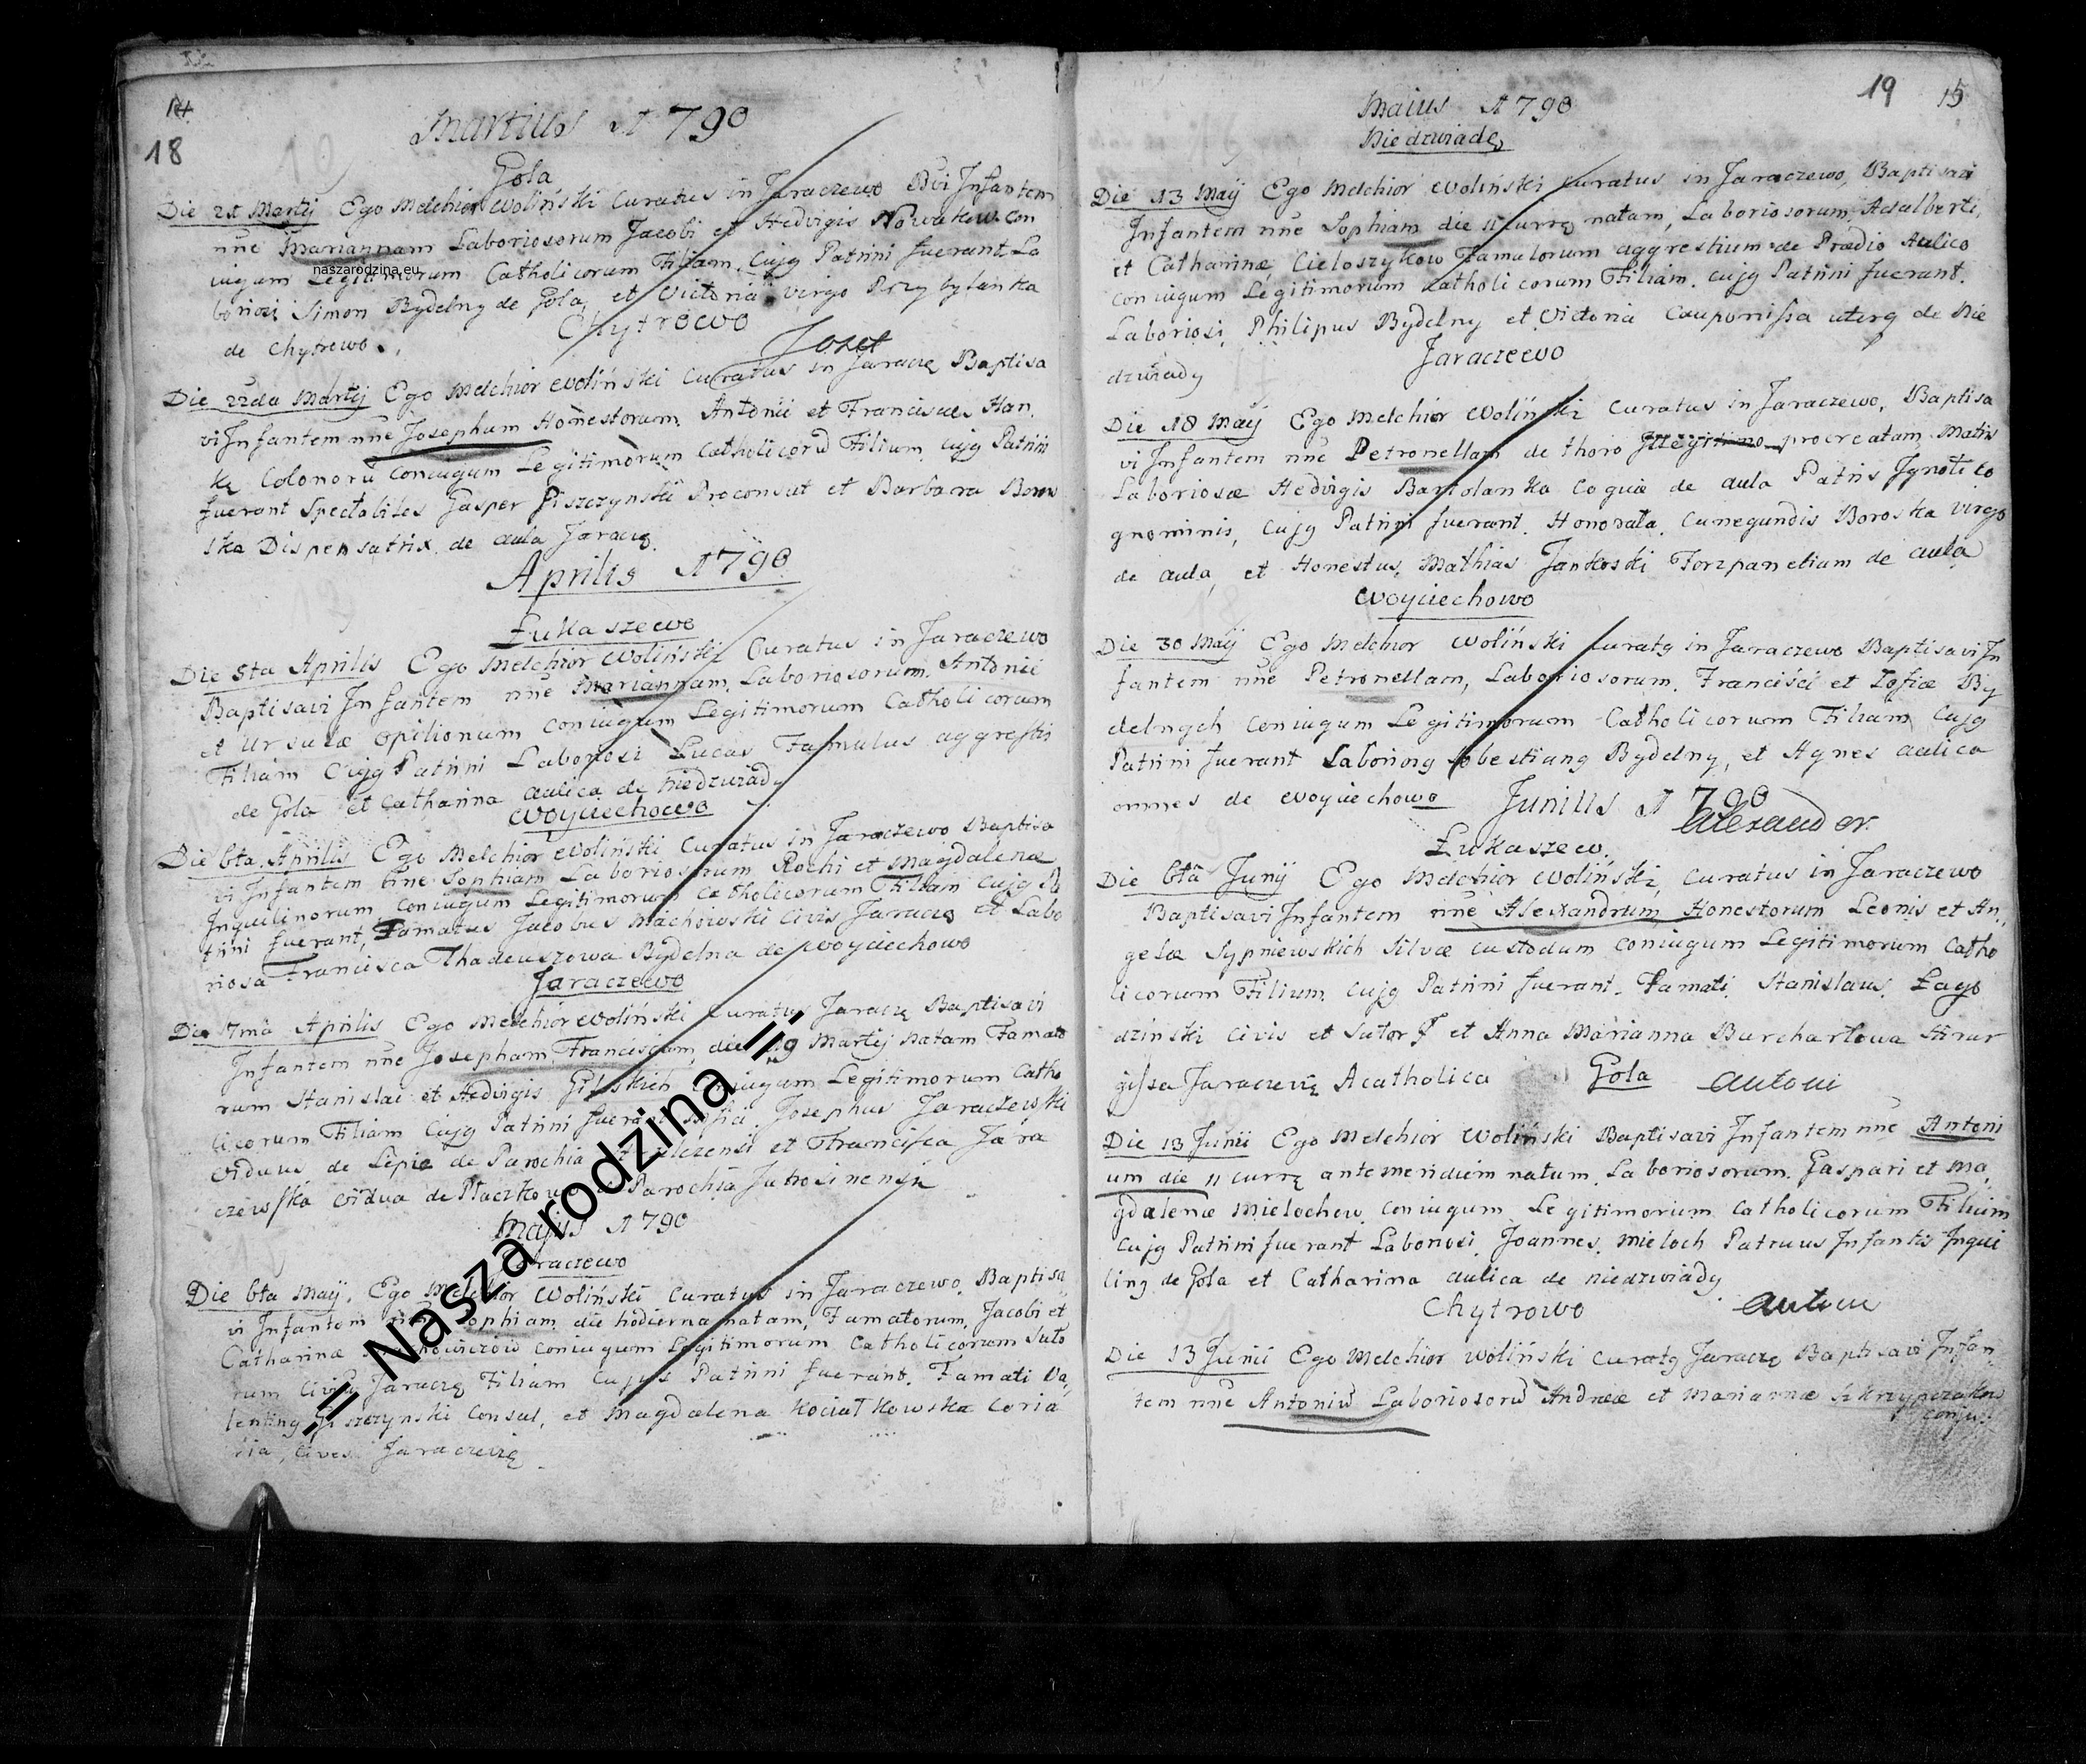 14
18
Martius A 790
Gola
Die 21 Martij Ego Melchior Woliński Curatus in Jaraczewo Bvi Infantem
nne Mariannam Laboriosorum Jacobi et Hedvigis Nowakow Con
iugum Legitimorum Catholicorum Filiam. Cujg Patrini fuerant La
naszarodzina.eu
boriosi Simon Bydelny de Gola, et Victoria virgo Przybylanka
de Chytrowo.
Chytrowo
Jozef
Die 22da Martij Ego Melchior Woliński Curatus in Jaracze Baptisa
vi Infantem nne Josephum Honestorum Antonii et Franciscae Han
ke Colonorū Coniugum Legitimorum Catholicorū Filium, cujg Patrini
fuerant Spectabiles Gasper Giszczynski Proconsul et Barbara Boro
ska Dispensatrix de aula Jaracze.
Aprilis A 790
Łukaszewo
Die 5ta Aprilis Ego Melchior Woliński Curatus in Jaraczewo
Baptisavi Infantem nne Mariannam, Laboriosorum Antonii
et Ursulæ opilionum coniugum Legitimorum Catholicorum
Filiam Cujg Patrini Laboriosi Lucas Famulus aggrestis
de Gola et Catharina aulica de Niedzwiady
Woyciechowo
Die 6ta Aprilis Ego Melchior Woliński Curatus in Jaraczewo Baptisa
vi Infantem nne Sophiam Laboriosorum Rochi et Magdalenæ
Inquilinorum coniugum Legitimorum Catholicorum Filiam cujg Pa
trini fuerant, Famatus Jacobus Machowski Civis Jaracze et Labo
riosa Francisca Thadeuszowa Bydelna de Woyciechowo
Jaraczewo
Die 7ma Aprilis Ego Melchior Woliński Curatus Jaracze Baptisavi
Infantem nne Josepham Franciscam, die 19 Martij Natam Famato
rum Stanislai et Hedvigis coniugum Legitimorum Catho
licorum Filiam Cujg Patrini fuerant Josephus Jaraczewski
viduus de Lepie de Parochia et Francisca Jara
czewska vidua de Parochia Jutrosinensi
Majus A 790
Jaraczewo
Die 6ta Maij. Ego Melchior Woliński Curatus in Jaraczewo, Baptisa
vi Infantem nne Sophiam die hodierna natam, Famatorum, Jacobi et
Catharinæ coniugum Legitimorum Catholicorum Suto
rum Civium Jaracze Filiam Cujus Patrini fuerant. Famati Va
lenting Giszczynski Consul, et Magdalena Kociałkowska Coria
ria, Cives Jaraczewie
= Nasza rodzina =
19 15
Maius A 790
Niedzwiade
Die 13 Maij Ego Melchior Woliński Curatus in Jaraczewo, Baptisavi
Infantem nne Sophiam die 11 curre natam, Laboriosorum, Adalberti,
et Catharinæ Cieloszykow Famulorum aggrestium de Prædio Aulico
coniugum Legitimorum Catholicorum Filiam. cujg Patrini fuerant.
Laboriosi, Philipus Bydelny et Victoria Cauponissa uterq de Nie
dzwiady
Jaraczewo
Die 18 Maij Ego Melchior Woliński Curatus in Jaraczewo, Baptisa
vi Infantem nne Petronellam de thoro Illegitimo procreatam Matris
Laboriosæ Hedvigis Bartolanka Coquæ de aula Patris Ignoti co
gnominis, Cujg Patrini fuerant. Honorata Cunegundis Boroska virgo
de aula, et Honestus, Mathias Jankoski Forzpanelium de aula
Woyciechowo
Die 30 Maij Ego Melchior Woliński Curatg in Jaraczewo Baptisavi In
fantem nne Petronellam, Laboriosorum. Francisci et Zofiæ By
delnych coniugum Legitimorum Catholicorum Filiam Cujg
Patrini fuerant Laboriosg Sebestiang Bydelny, et Agnes aulica
omnes de Woyciechowo
Junius A 790
Alexander
Łukaszew.
Die 6ta Junij Ego Melchior Woliński, Curatus in Jaraczewo
Baptisavi Infantem nne Alexandrum, Honestorum Leonis et An
gelæ Sypniewskich Silvæ custodum coniugum Legitimorum Catho
licorum Filium, Cujg Patrini fuerant. Famati Stanislaus Łago
dzinski Civis et Sutor J et Anna Marianna Burchartowa Hirur
gissa Jaraczevie Acatholica
Gola
Antoni
Die 13 Junii Ego Melchior Woliński Baptisavi Infantem nne Antoni
um die 11 curre antemeridiem natum, Laboriosorum. Gaspari et Ma
gdalenæ Mielochow coniugum Legitimorum Catholicorum Filium
Cujg Patrini fuerant Laboriosi, Joannes Mieloch Patruus Infantis Inqui
ling de Gola et Catharina aulica de Niedzwiady
Chytrowo
Antoni
Die 13 Junii Ego Melchior Woliński Curatg Jaracze Baptisavi Infan
tem nne Antoniū Laboriosorū Andreæ et Mariannæ Skrzypczakow
conju